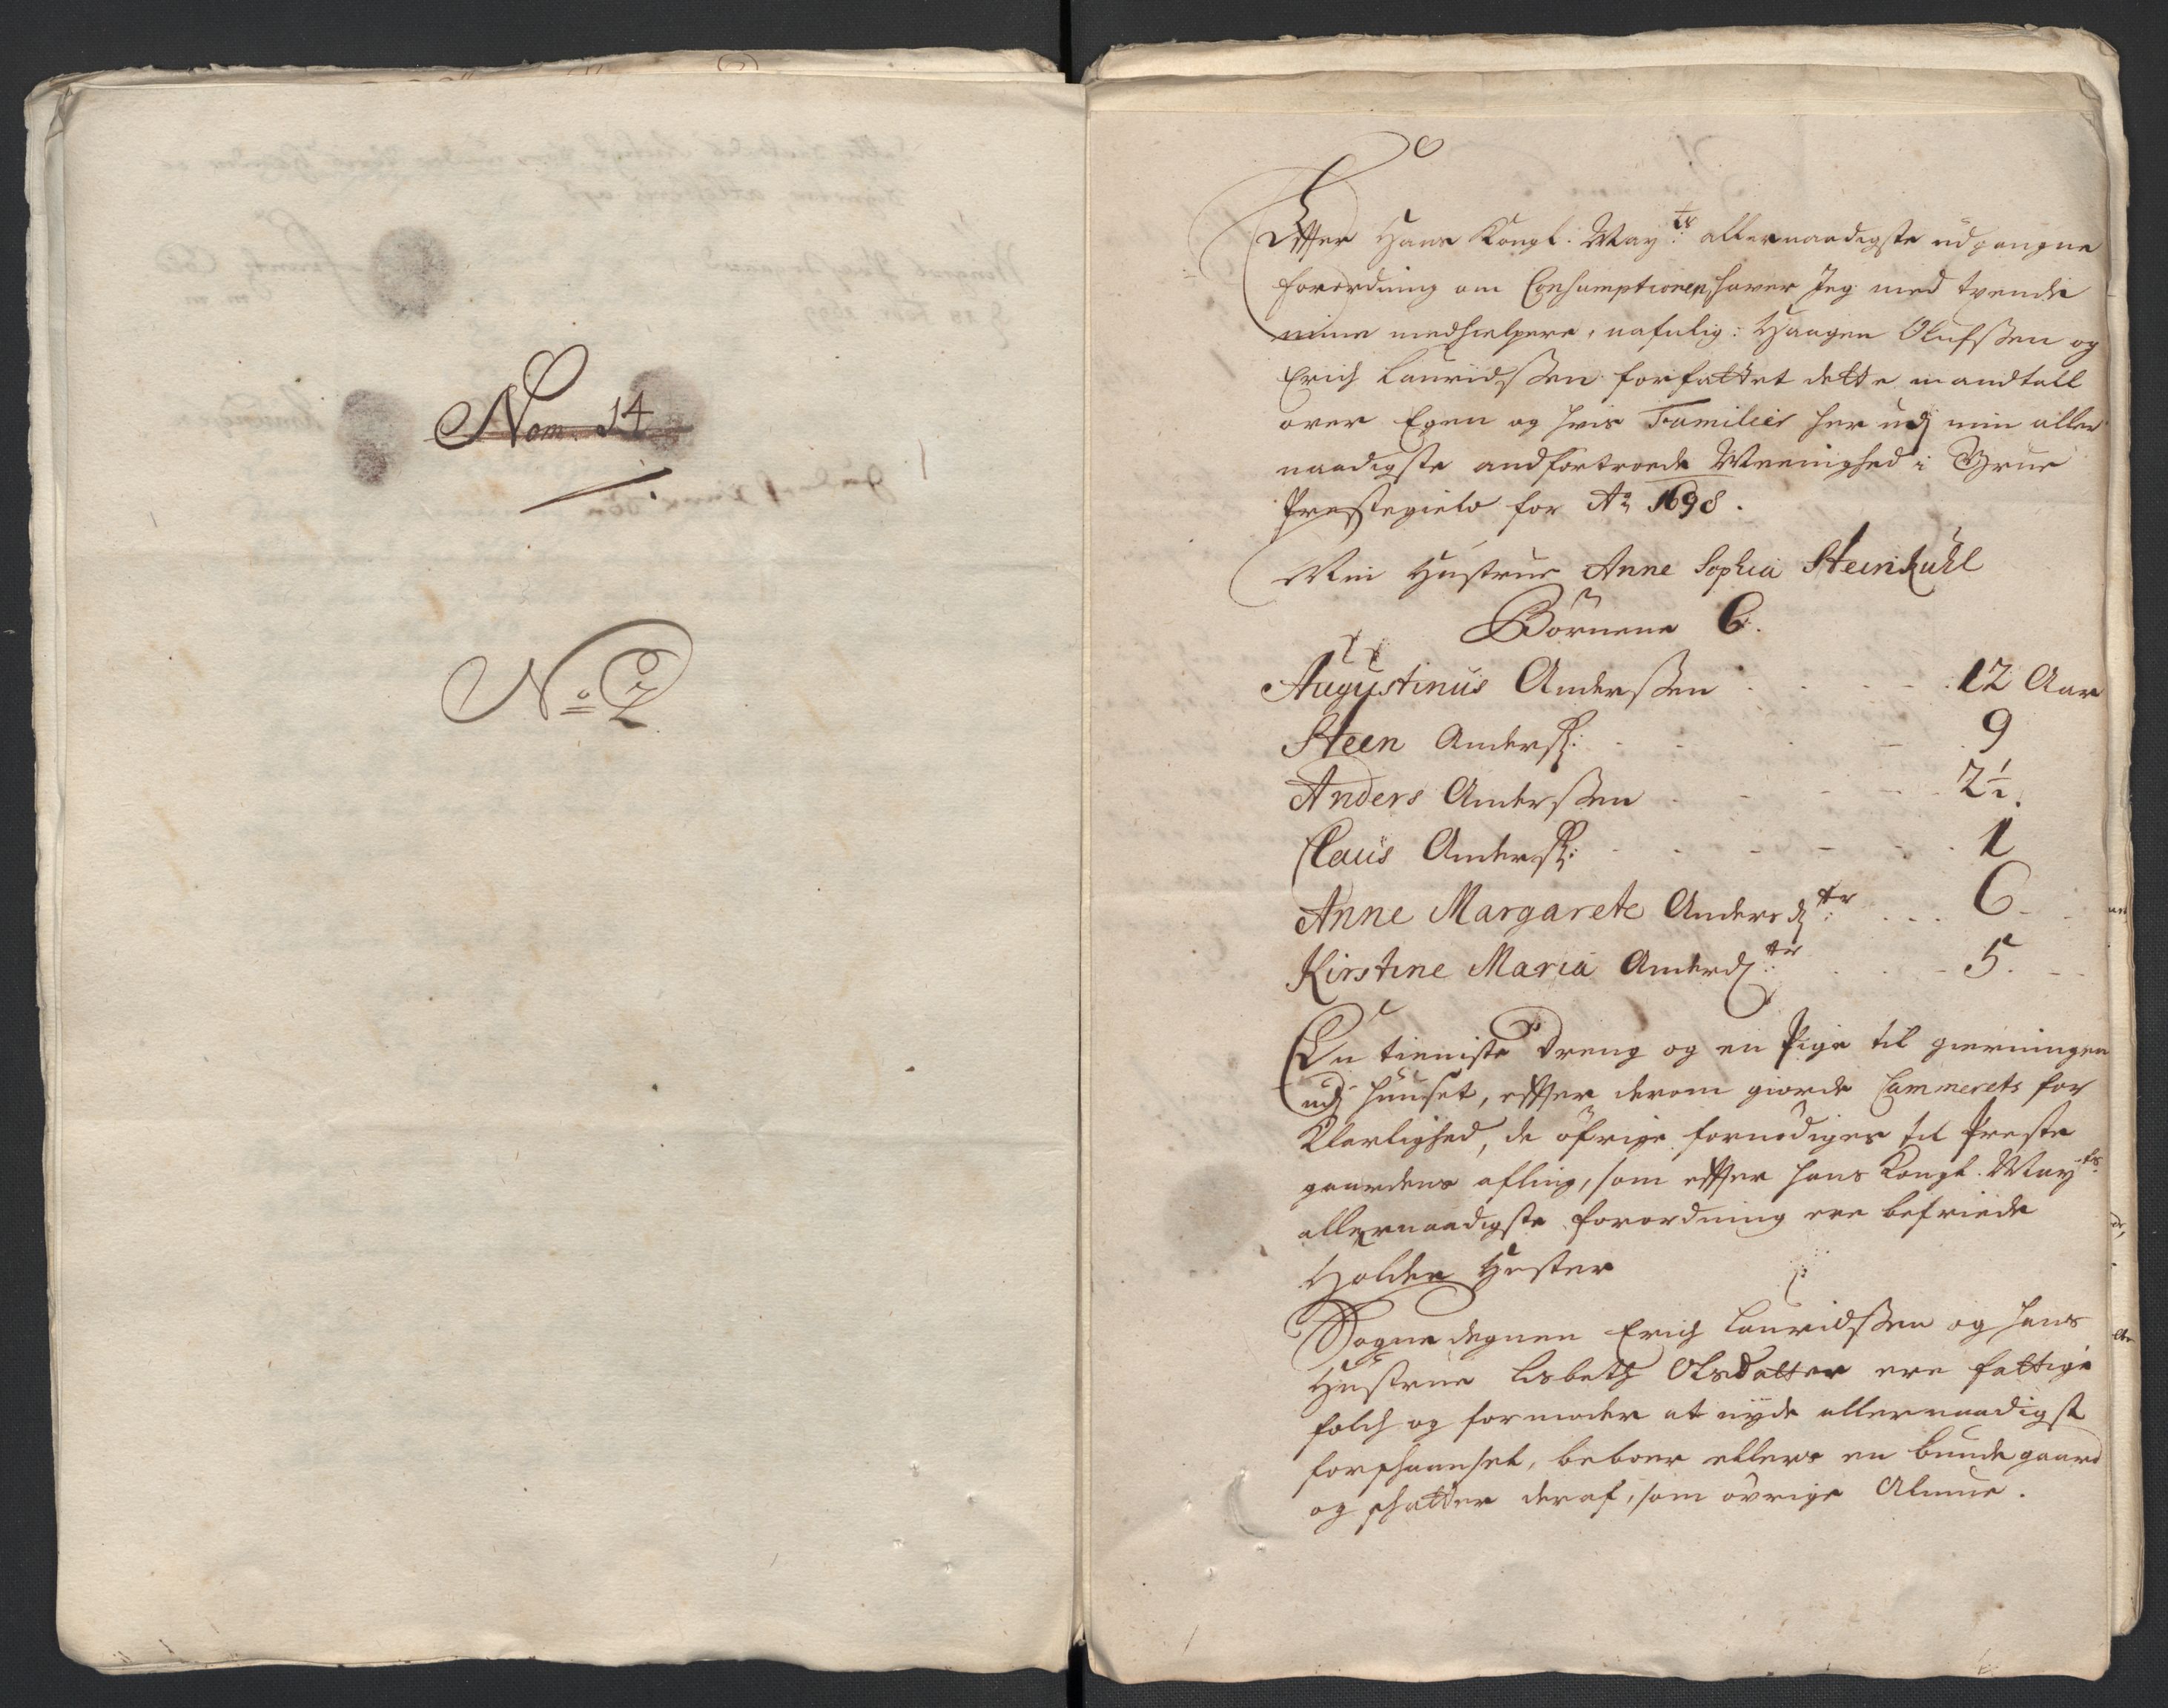 Nom. 14
No 2
Effter Hans Kongl. May:ts allernaadigste udgangne
forordning om Consumptionen, hafver Jeg med tvende
mine medhielpere, nafnlig: Haagen Olufssen og
Erich Lauridssen forfattet dette mandtall
over Egen og hvis Familier her udj min aller
naadigste andfortroede Meenighed i Grue
Prestegield for Ao 1698.
Min Hustrue Anne Sophia Steinkuhl
Börnene 6.
Augustinus Anderssen 12 Aar
Steen Anderss: 9
Anders Anderssen 2½.
Claus Anderss: 1
Anne Margarete Andersd:tr 6
Kirstine Maria Andersd:tr 5.
En tieniste Dreng og en Pige til gierningen
udj huuset, effter derom giorde Cammerets for
Klarlighed, de öfrige fornödiges til Preste
gaardens afling, som effter hans Kongl. May:ts
allernaadigste forordning ere befriede
Holder Hester
Sognedegnen Erich Lauridssen og hans
Hustrue Lisbeth Olsdatter ere fattige
folch og formoder at nyde allernaadigst
forschaansel, beboer ellers en bundegaard
og schatter deraf, som övrige Almue.